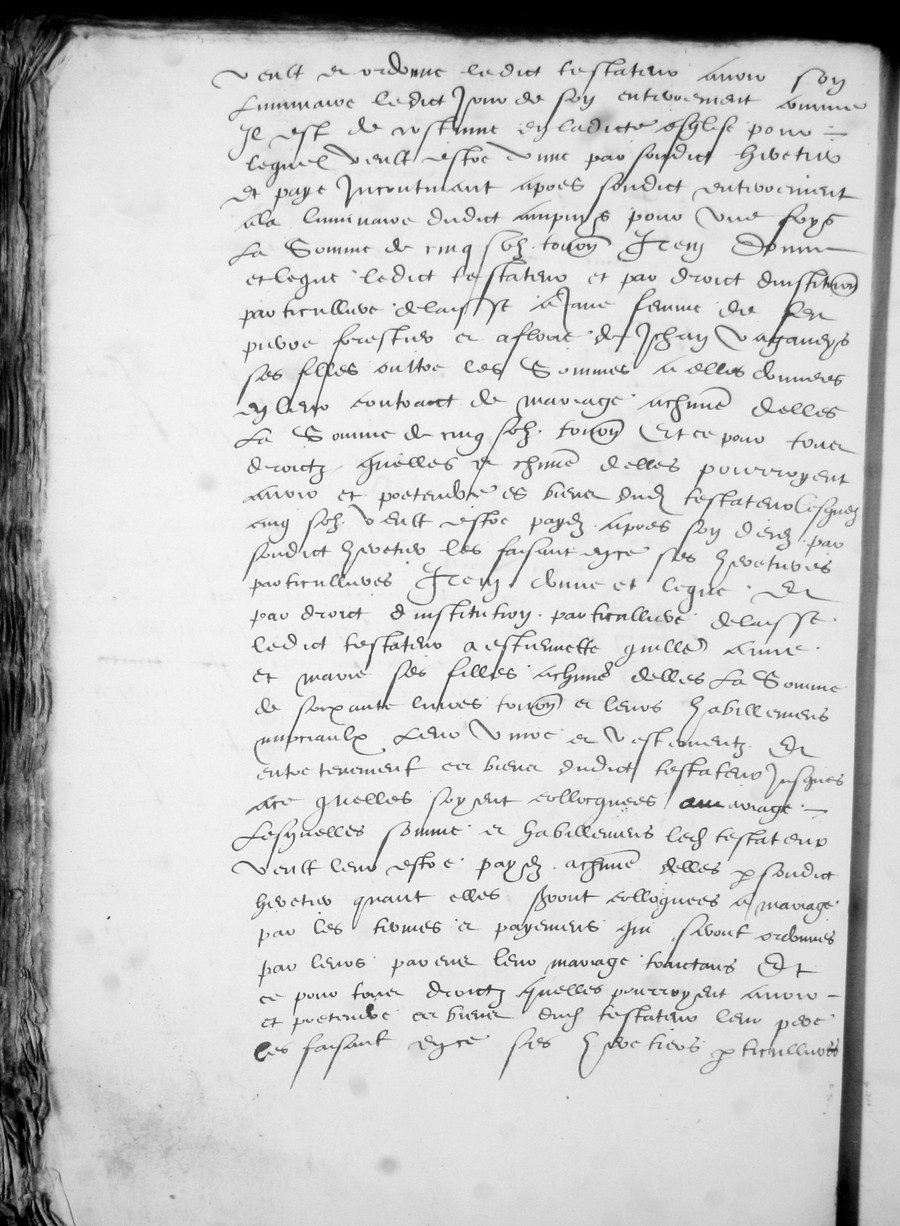 veult et ordonne ledict testateur avoir son
luminaire ledict jour de son enterrement comme
Il est de costume en ladicte esglise pour
lequel veult estre donne par sondict heretier
et paye Incontinant apres sondict enterrement
ala luminaire dudict pour une foys
La Somme de cinq solz. tourn Item Donne
et legue ledict testateur et par droict dinstitution
particulliere delaisse a Jane femme de feu
pierre forestier et a de Jehan
ses filles oultre les Sommes a elles donnees
en leur contract de mariage achune delles
La Somme de cinq solz. tourn Et ce pour tous
droictz quelles et chune delles pourroyent
avoir et pretendre es biens dud testateur lesquelz
cinq solz. veult estre payes. apres son deces par
sondict heretier les faisant en ce ses heretieres
particullieres Item donne et legue. Et
par droict dinstitution. particulliere delaisse.
ledict testateur a estiennette anne.
et marie ses filles achune delles La Somme
de soixante livres tourn et leurs habillemens
nupciaulx Leur vivre et vestementz Et
entretenement es biens dudict testateur Jusques
ace quelles soyent collocquees a mariage.
Lesquelles somme et habillemens led testateur
veult leur estre payes. achune delles p sondict
heretier quant elles seront colloquees a mariage
par les termes et payemens qui seront ordonnes
par leurs parens leur mariage traictans Et
ce pour tous droictz quelles pourroyent avoir
et pretendre es biens dud testateur leur pere
les faisant en ce ses heretieres pticullieres